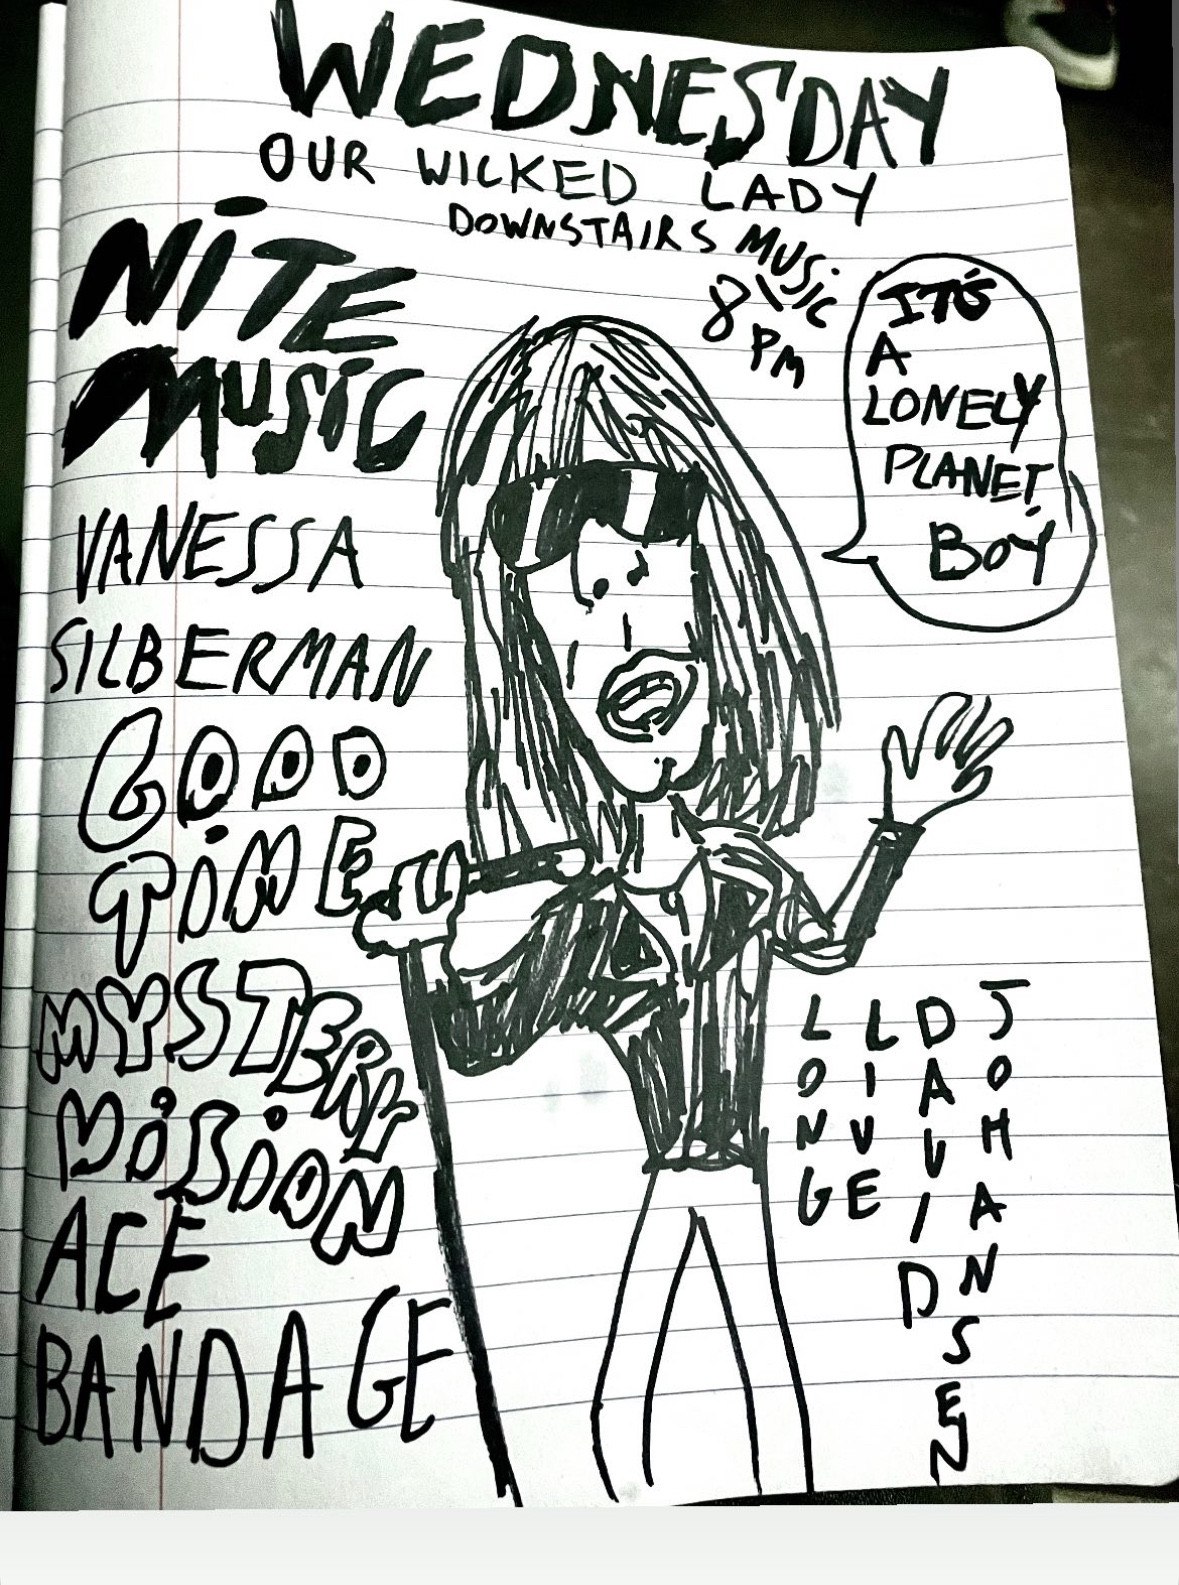 WEDNESDAY
OUR WICKED LADY
DOWNSTAIRS MUSIC
8 PM
NITE
MUSIC
IT'S
A
LONELY
PLANET
BOY
VANESSA
SILBERMAN
GOOD
TIME
MYSTERY
MISSION
ACE
BANDAGE
LONG
LIVE
DAVID
JOHANSEN